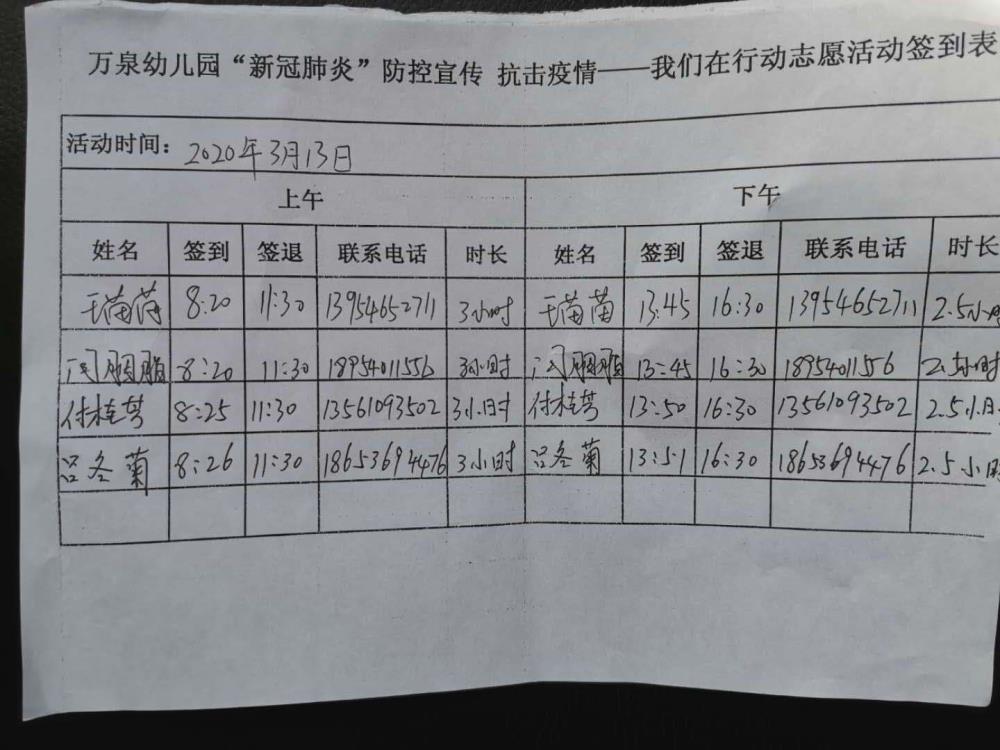 万泉幼儿园“新冠肺炎”防控宣传 抗击疫情——我们在行动志愿活动签到表
活动时间：2020年3月13日
上午 下午
姓名 签到 签退 联系电话 时长 姓名 签到 签退 联系电话 时长
王苗苗 8:20 11:30 13954652711 3小时 王苗苗 13:45 16:30 13954652711 2.5小时
闫胭脂 8:20 11:30 18954011556 3小时 闫胭脂 13:45 16:30 18954011556 2.5小时
付桂芹 8:25 11:30 13561093502 3小时 付桂芹 13:50 16:30 13561093502 2.5小时
吕冬菊 8:26 11:30 18653694476 3小时 吕冬菊 13:51 16:30 18653694476 2.5小时